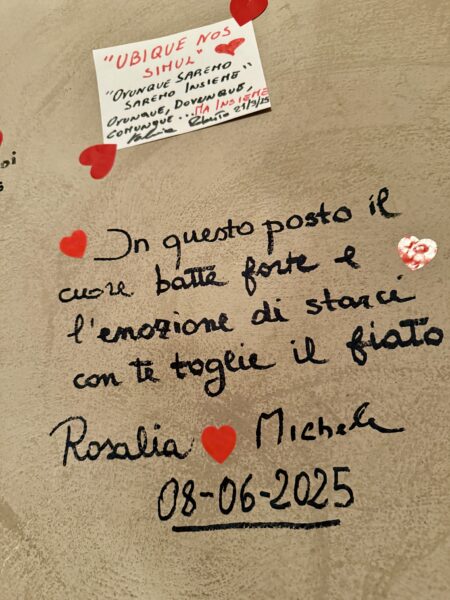 "UBIQUE NOS
SIMUL"
"OVUNQUE SAREMO
SAREMO INSIEME"
OVUNQUE, DOVUNQUE,
COMUNQUE... MA INSIEME
21/3/25
In questo posto il
cuore batte forte e
l'emozione di starci
con te toglie il fiato
Rosalia Michele
08-06-2025